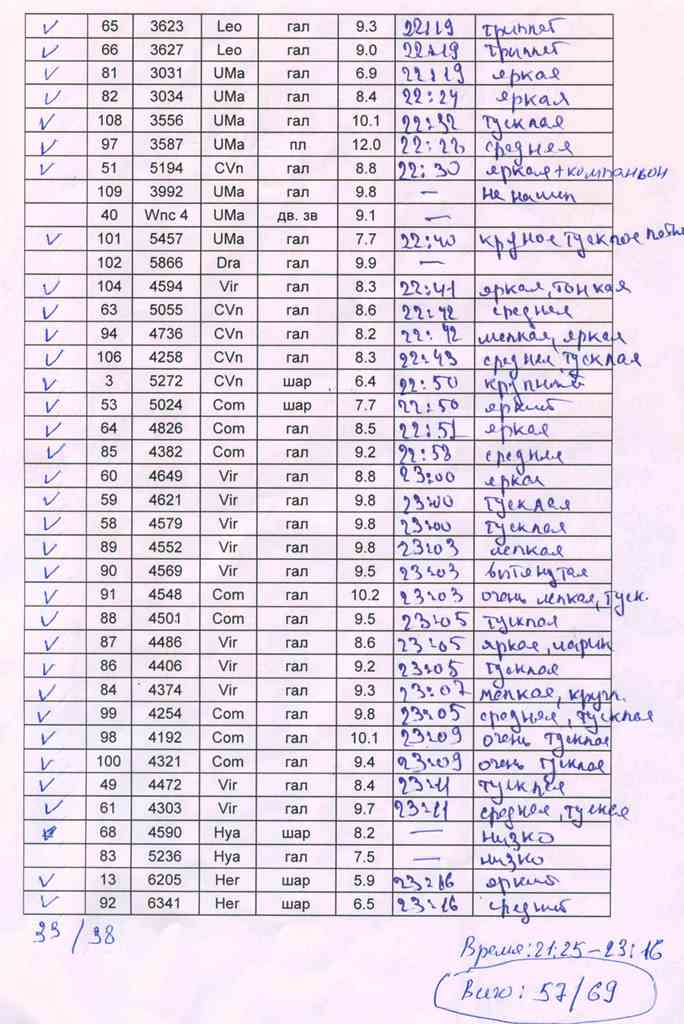 ✓ 65 3623 Leo гал 9.3 22:19 триплет
✓ 66 3627 Leo гал 9.0 22:19 триплет
✓ 81 3031 UMa гал 6.9 22:19 яркая
✓ 82 3034 UMa гал 8.4 22:24 яркая
✓ 108 3556 UMa гал 10.1 22:32 тусклая
✓ 97 3587 UMa пл 12.0 22:28 средняя
✓ 51 5194 CVn гал 8.8 22:30 яркая+компаньон
109 3992 UMa гал 9.8 — не нашел
40 Wnc 4 UMa дв. зв 9.1 —
✓ 101 5457 UMa гал 7.7 22:40 крупное тусклое пятно
102 5866 Dra гал 9.9 —
✓ 104 4594 Vir гал 8.3 22:41 яркая, тонкая
✓ 63 5055 CVn гал 8.6 22:42 средняя
✓ 94 4736 CVn гал 8.2 22:42 мелкая, яркая
✓ 106 4258 CVn гал 8.3 22:43 средняя, тусклая
✓ 3 5272 CVn шар 6.4 22:50 крупный
✓ 53 5024 Com шар 7.7 22:50 яркий
✓ 64 4826 Com гал 8.5 22:51 яркая
✓ 85 4382 Com гал 9.2 22:58 средняя
✓ 60 4649 Vir гал 8.8 23:00 яркая
✓ 59 4621 Vir гал 9.8 23:00 тусклая
✓ 58 4579 Vir гал 9.8 23:00 тусклая
✓ 89 4552 Vir гал 9.8 23:03 мелкая
✓ 90 4569 Vir гал 9.5 23:03 вытянутая
✓ 91 4548 Com гал 10.2 23:03 очень мелкая, туск.
✓ 88 4501 Com гал 9.5 23:05 тусклая
✓ 87 4486 Vir гал 8.6 23:05 яркая, шарик
✓ 86 4406 Vir гал 9.2 23:05 тусклая
✓ 84 4374 Vir гал 9.3 23:07 мелкая, кругл.
✓ 99 4254 Com гал 9.8 23:05 средняя, тусклая
✓ 98 4192 Com гал 10.1 23:09 очень тусклая
✓ 100 4321 Com гал 9.4 23:09 очень тусклая
✓ 49 4472 Vir гал 8.4 23:11 тусклая
✓ 61 4303 Vir гал 9.7 23:11 средняя, тусклая
68 4590 Hya шар 8.2 — низко
83 5236 Hya гал 7.5 — низко
✓ 13 6205 Her шар 5.9 23:16 яркий
✓ 92 6341 Her шар 6.5 23:16 средний
33/38
Время: 21:25-23:16
57/69